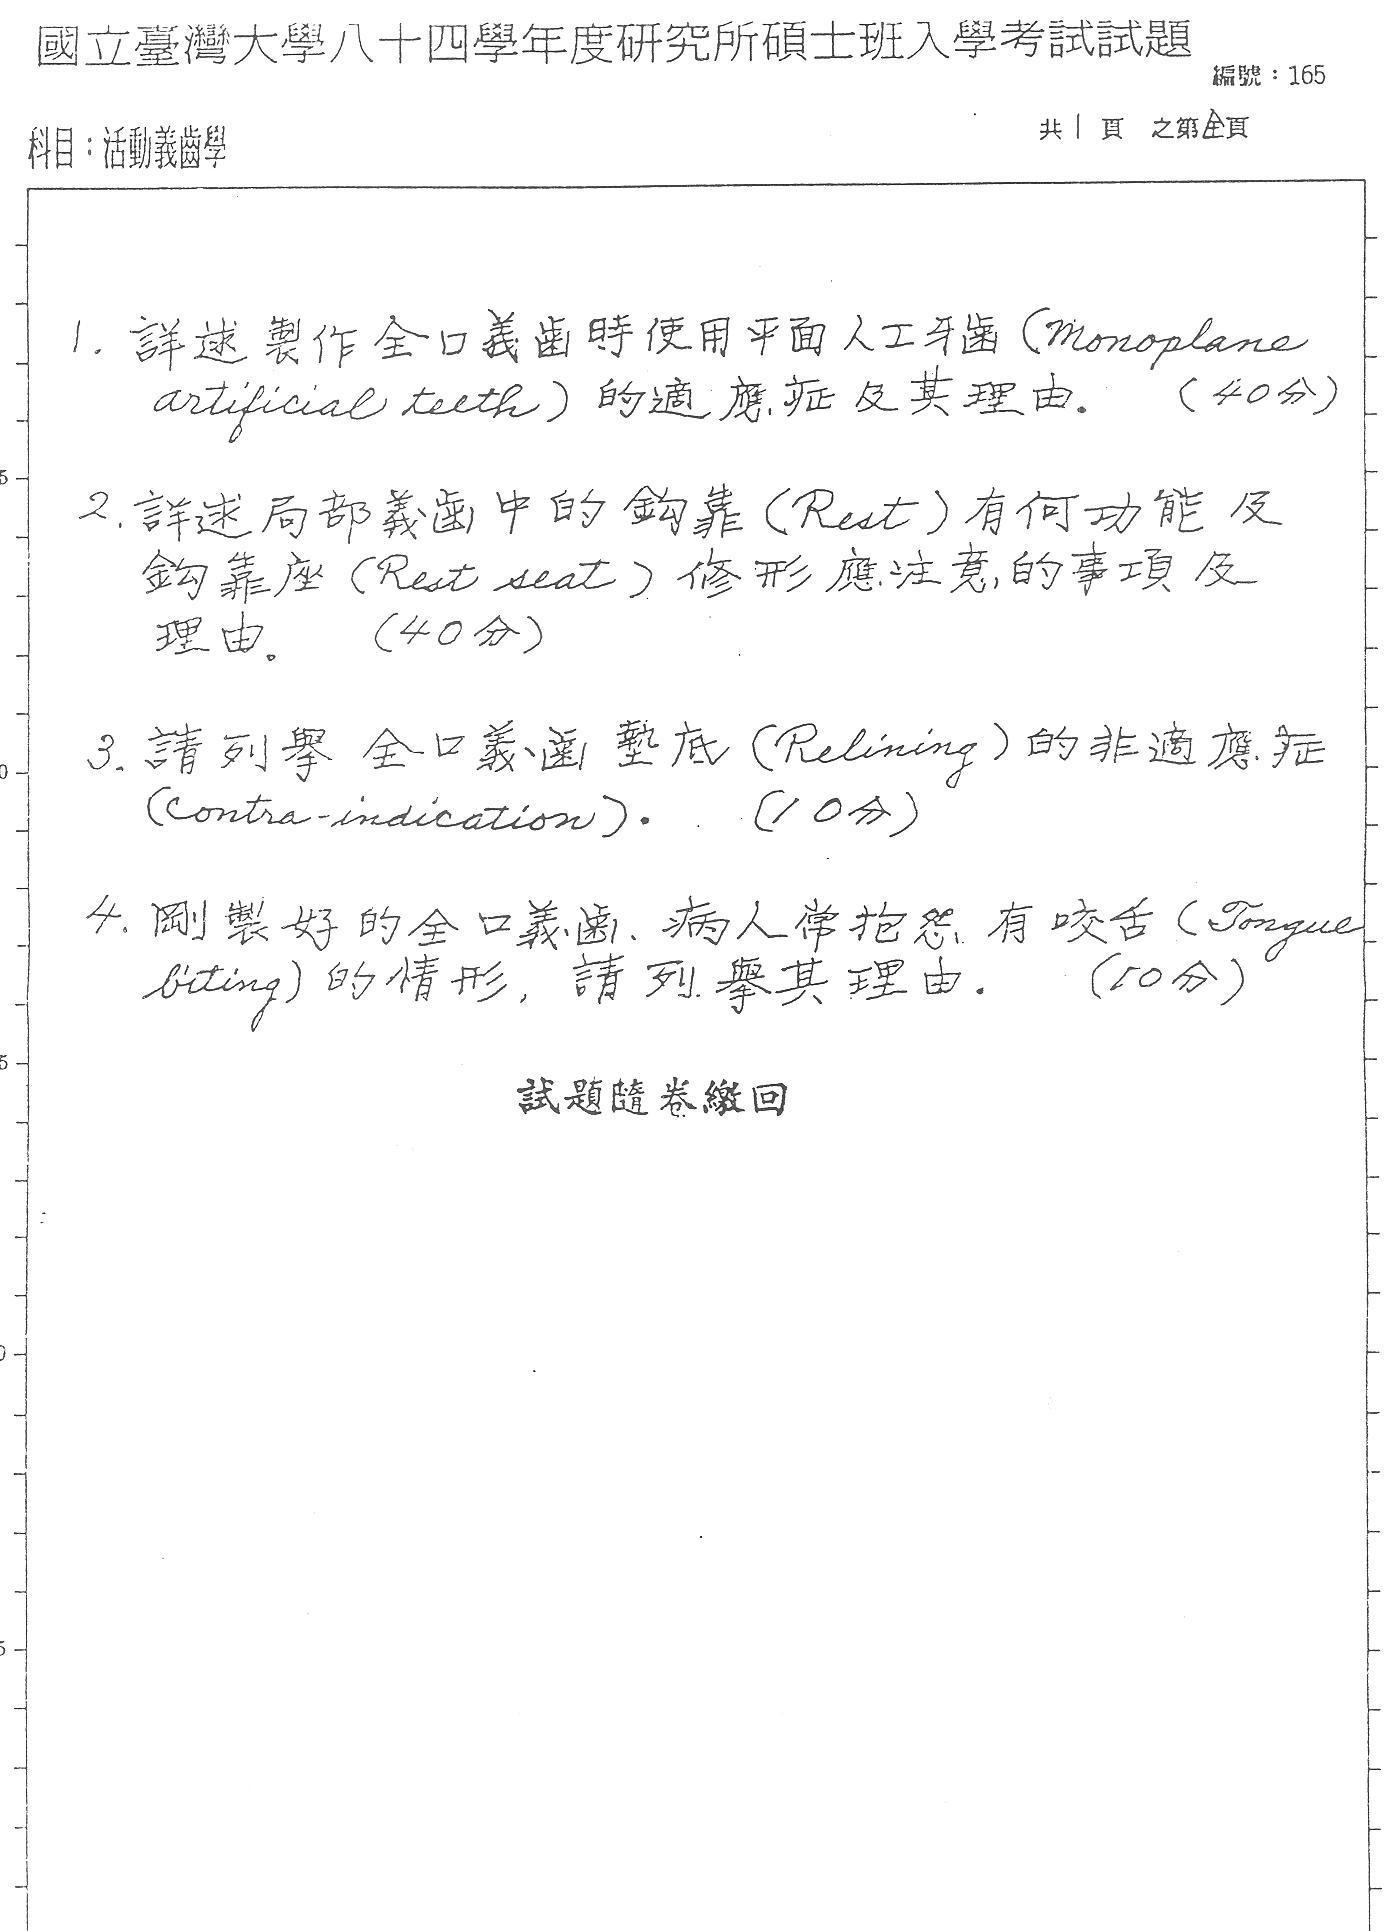 國立臺灣大學八十四學年度研究所碩士班入學考試試題
編號：165
科目：活動義齒學
共1頁 之第全頁
1. 詳述製作全口義齒時使用平面人工牙齒(Monoplane
artificial teeth)的適應症及其理由. (40分)
2. 詳述局部義齒中的鈎靠(Rest)有何功能及
鈎靠座(Rest seat)修形應注意的事項及
理由. (40分)
3. 請列舉全口義齒墊底(Relining)的非適應症
(Contra-indication). (10分)
4. 剛製好的全口義齒、病人常抱怨有咬舌(Tongue
biting)的情形, 請列舉其理由. (10分)
試題隨卷繳回